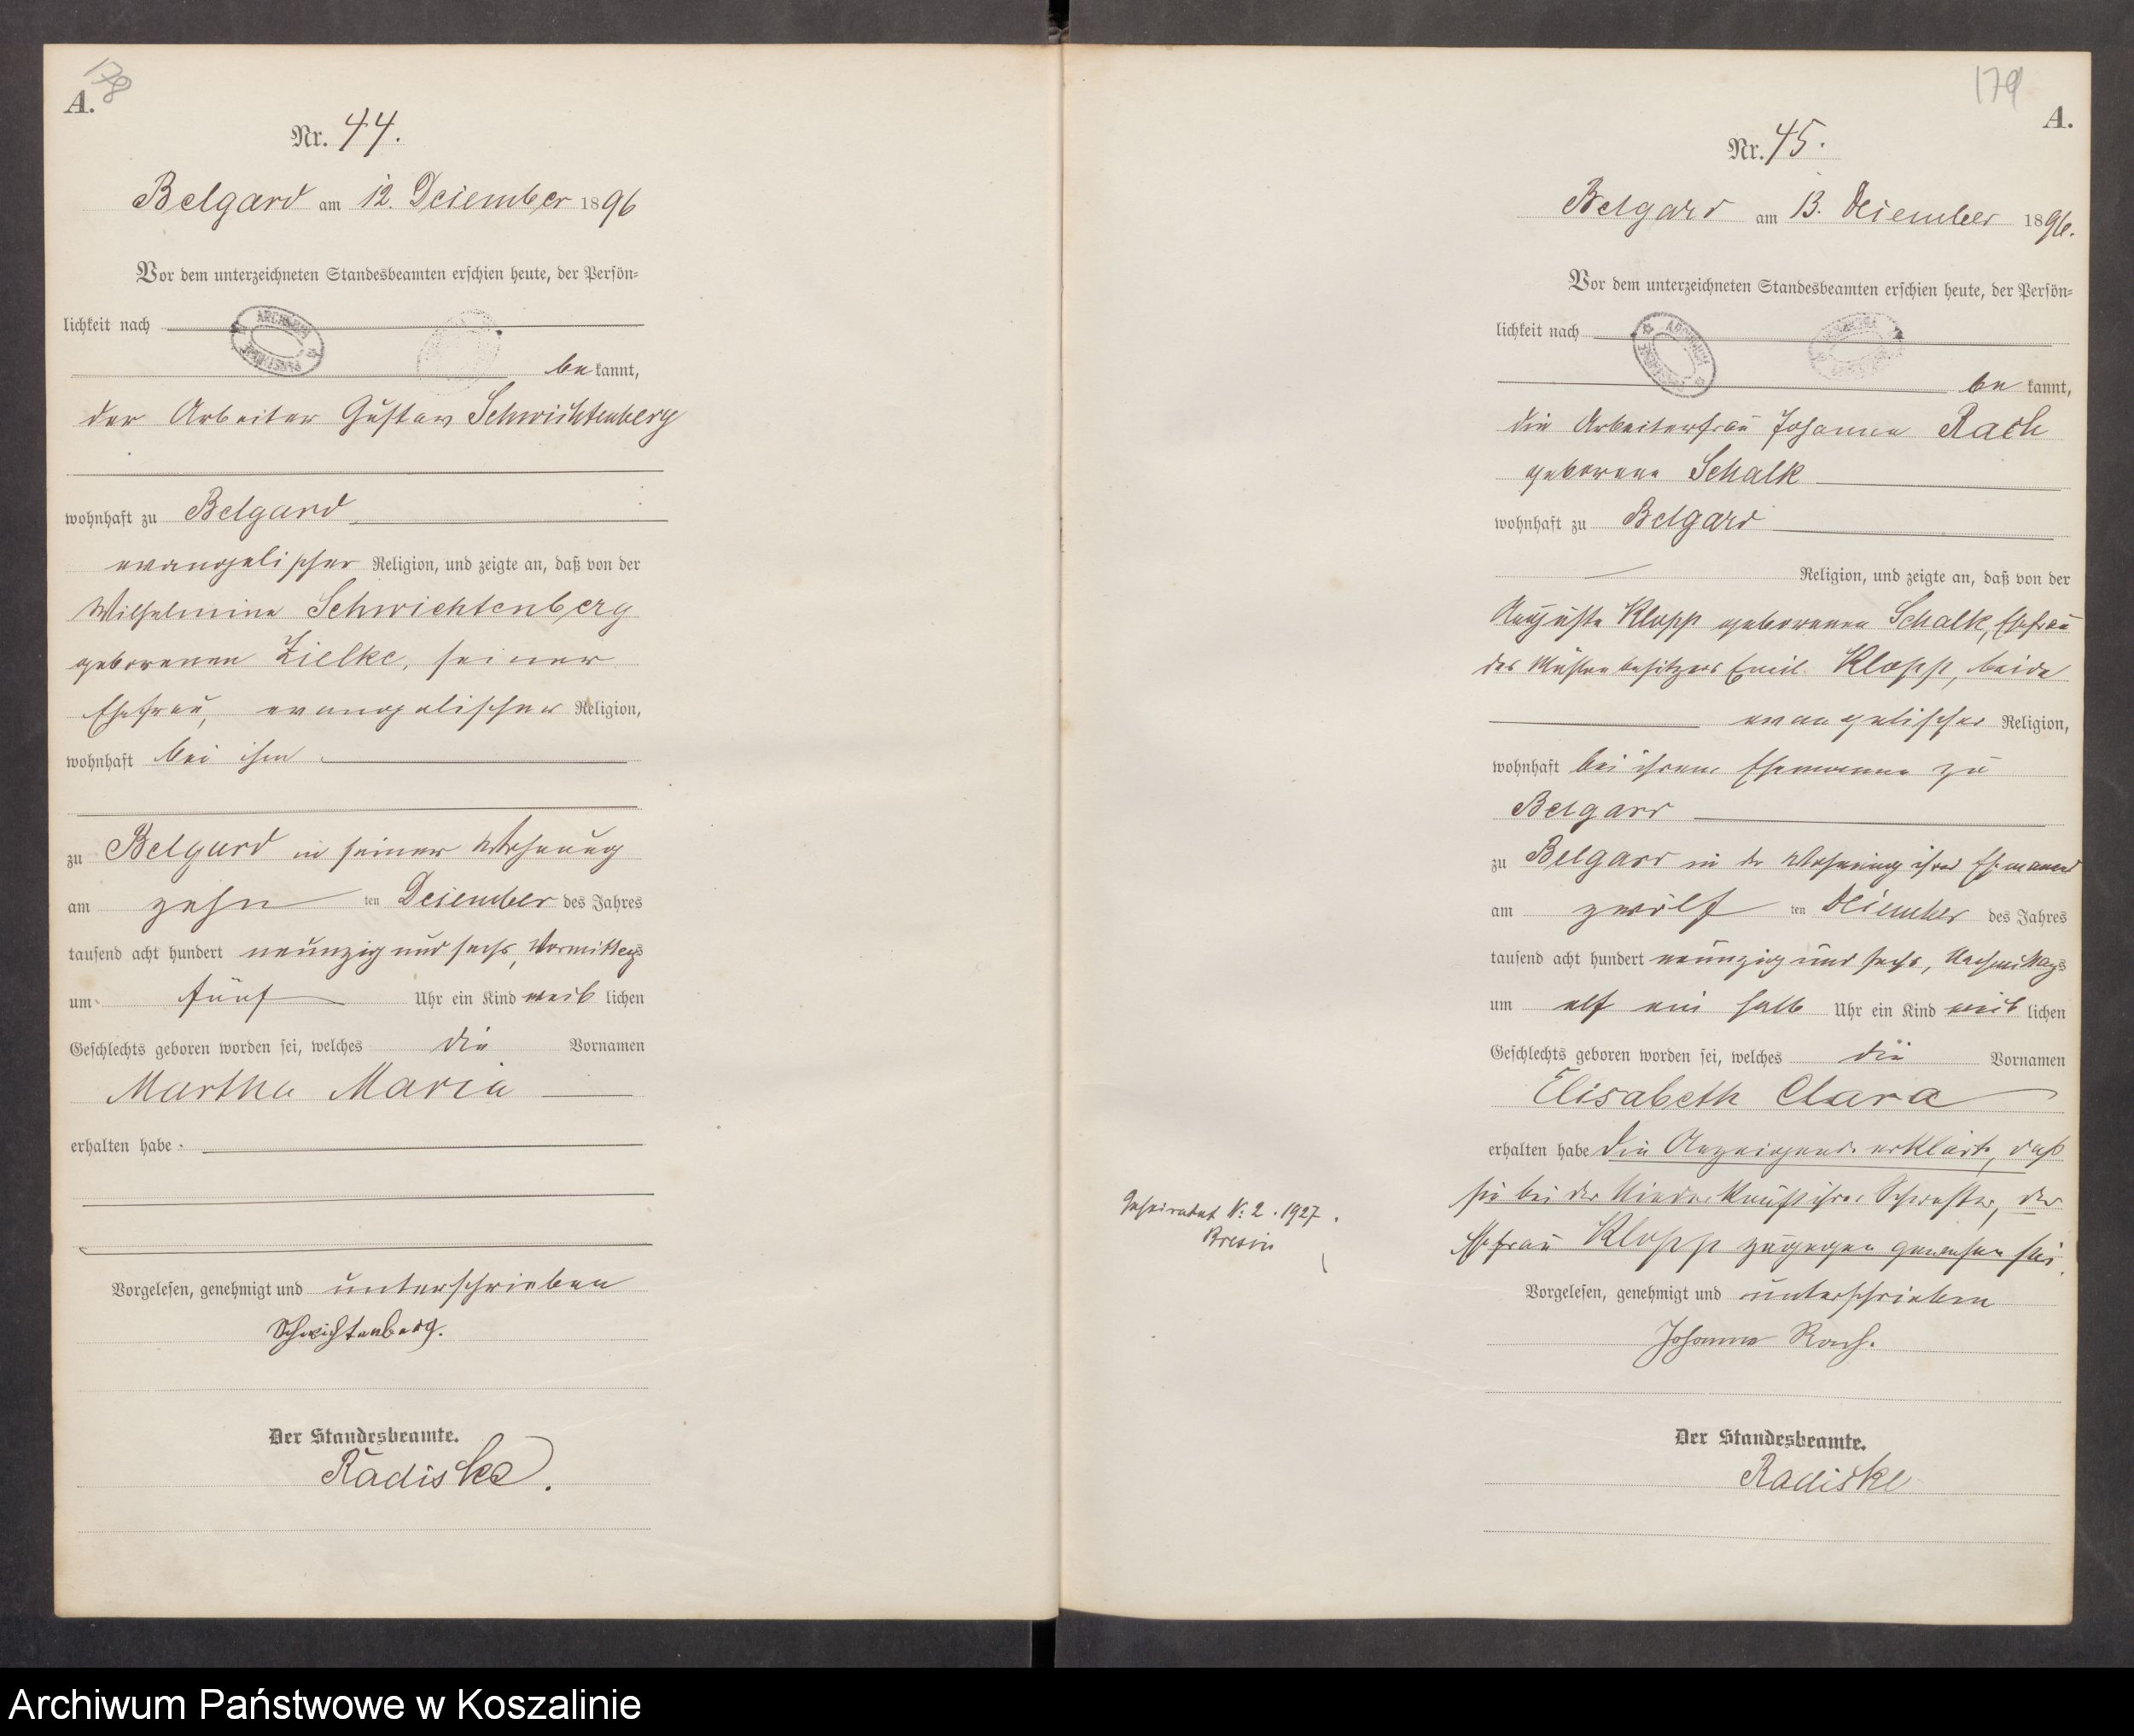 178
A.
Nr. 44.
Belgard am 12. Dezember 1896
Vor dem unterzeichneten Standesbeamten erschien heute, der Persön-
lichkeit nach
be kannt,
der Arbeiter Gustav Schwichtenberg
wohnhaft zu Belgard
evangelischer Religion, und zeigte an, daß von der
Wilhelmine Schwichtenberg
geborenen Zielke, seiner
Ehefrau, evangelischer Religion,
wohnhaft bei ihm
zu Belgard in seiner Wohnung
am zehn ten Dezember des Jahres
tausend acht hundert neunzig und sechs, Vormittags
um fünf Uhr ein Kind weib lichen
Geschlechts geboren worden sei, welches die Vornamen
Martha Maria
erhalten habe.
Vorgelesen, genehmigt und unterschrieben
Schwichtenberg.
Der Standesbeamte.
Radiske.
179
A.
Nr. 45.
Belgard am 13. Dezember 1896.
Vor dem unterzeichneten Standesbeamten erschien heute, der Persön-
lichkeit nach
be kannt,
die Arbeiterfrau Johanna Rach
geborene Schalk
wohnhaft zu Belgard
Religion, und zeigte an, daß von der
Auguste Klopp geborenen Schalk, Ehefrau
des Mühlenbesitzers Emil Klopp, beide
evangelischer Religion,
wohnhaft bei ihrem Ehemanne zu
Belgard
zu Belgard in der Wohnung ihres Ehemannes
am zwölf ten Dezember des Jahres
tausend acht hundert neunzig und sechs, Nachmittags
um elf ein halb Uhr ein Kind weib lichen
Geschlechts geboren worden sei, welches die Vornamen
Elisabeth Clara
erhalten habe die Anzeigende erklärte, daß
sie bei der Niederkunft ihrer Schwester, der
Ehefrau Klopp zugegen gewesen sei.
Geheiratet N: 2. 1927.
Bresin
Vorgelesen, genehmigt und unterschrieben
Johanna Rach.
Der Standesbeamte.
Radiske
Archiwum Państwowe w Koszalinie